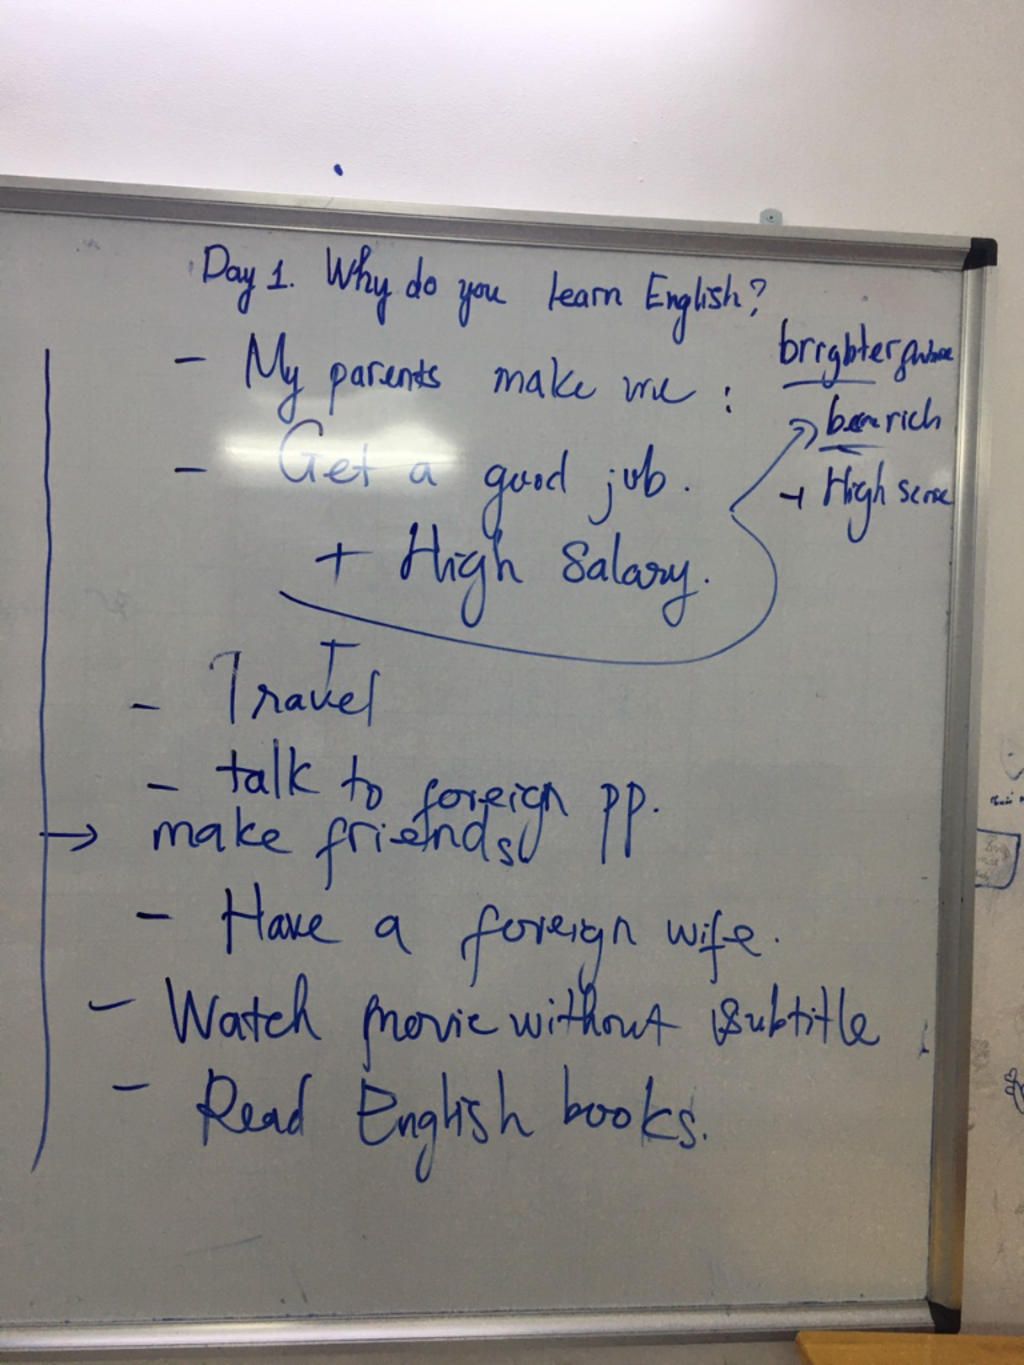 Day 1. Why do you learn English?
- My parents make me :
brighter future
- Get a good job.
be rich
+ High Salary.
→ High
- Travel
- talk to foreign pp.
→ make friends
- Have a foreign wife.
- Watch movie without subtitle
- Read English books.